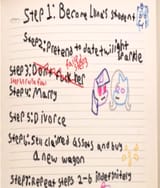 Step 1: Become Luna's student
Step 2: Pretend to date twilight
sparkle
Step 3:
Step 4: Marry
Step 5: Divorce
Step 6: Sell claimed assets and buy
a new wagon
Step 7: Repeat steps 2-6 indefinitely